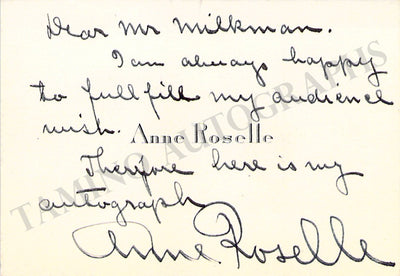 Dear Mr Milkman.
I am always happy
to fullfill my audience
wish.
Anne Roselle
Therefore here is my
autograph
Anne Roselle
TAMINO AUTOGRAPHS